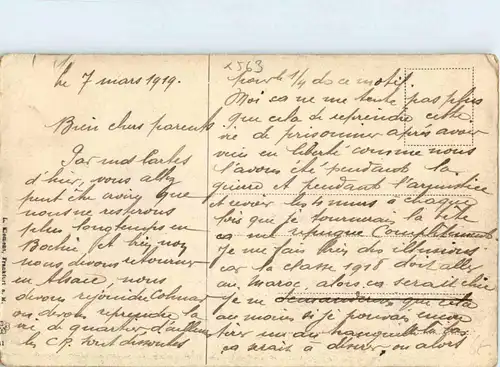 2563
Le 7 mars 1919.
Bien chers parents
Par mes cartes
d'hier, vous allez
peut être avoir que
nous ne resterons
plus longtemps en
Bochie et bien non
nous devons retourner
en Alsace, nous
devons rejoindre Colmar
ou devons reprendre la
vie de quartier d'ailleurs
les C.P. sont dissoutes
pour le 1/4 de ce motif.
Moi ca ne me tente pas plus
que cela de reprendre cette
vie de prisonnier après avoir
vécu en liberté comme nous
l'avons été pendant la
guerre et pendant l'armistice
et revoir les 4 murs à chaque
fois que je tournerais la tête
ça me répugne complètement
Je me fais bien des illusions
car la classe 1918 doit aller
au maroc, alors ça serait chic
Je ne demanderais que cela
au moins si je pouvais encore
tirer un an tranquille là bas
ça serait à désirer, ou alors
L. Klement, Frankfurt a. M.